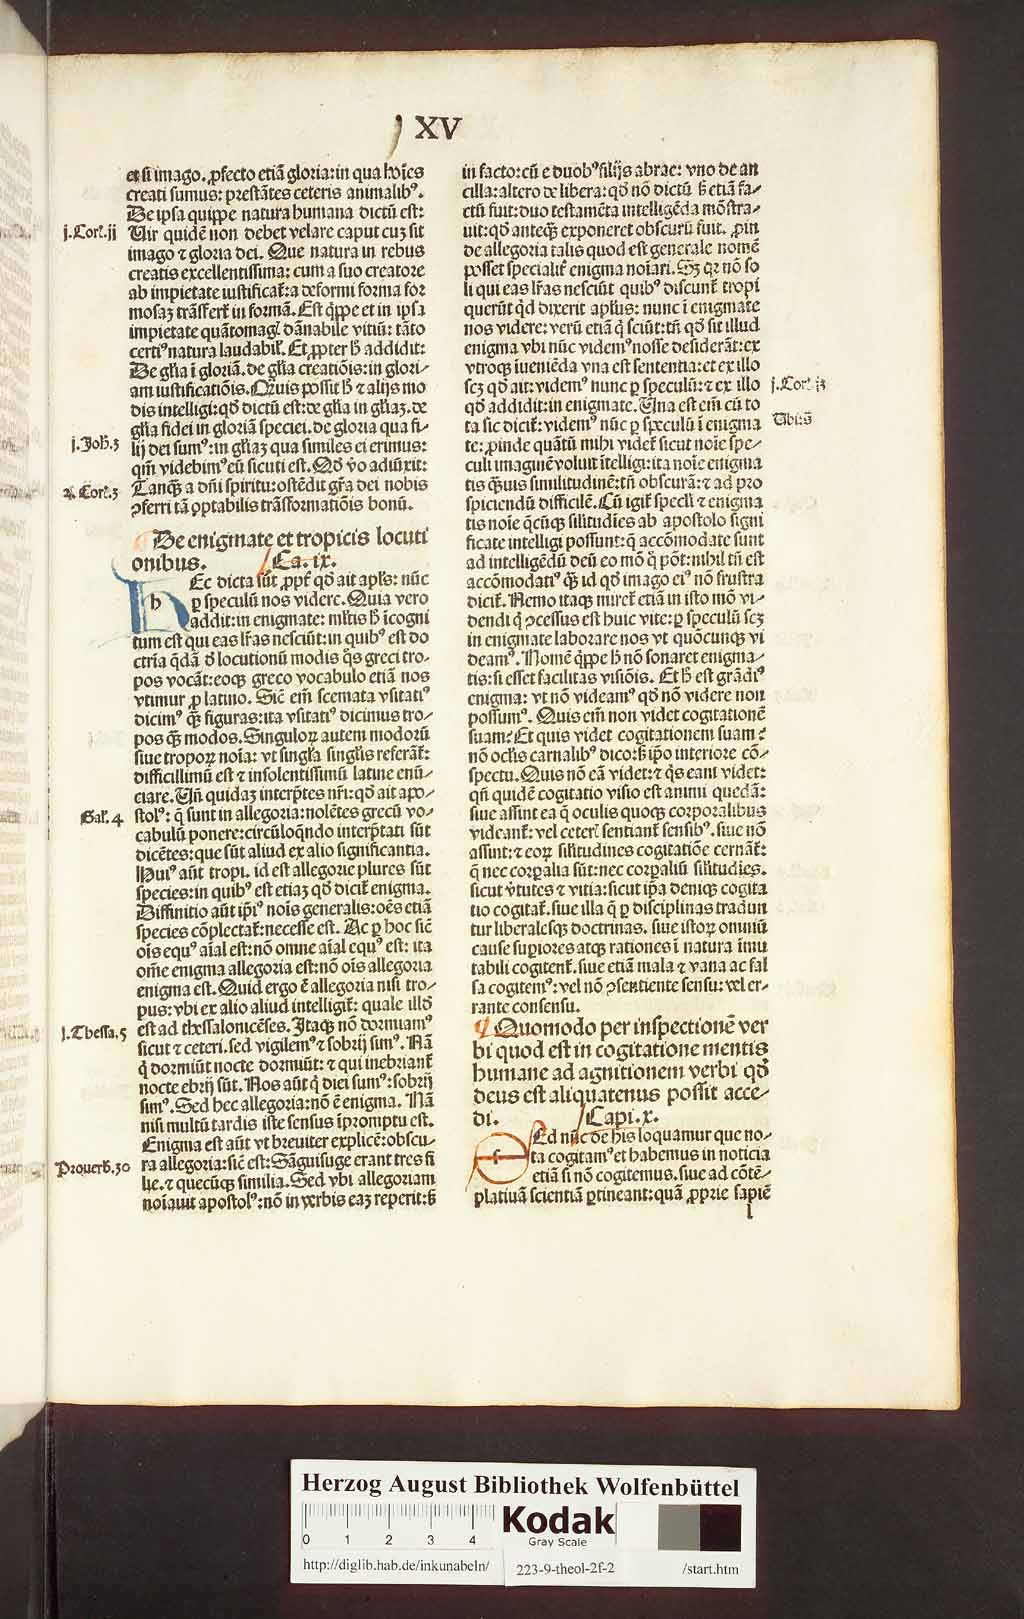 XV
et si imago. ꝓfecto etiā gloria: in qua hoīes
creati sumus: prestātes ceteris animalibꝰ.
De ipsa quippe natura humana dictū est:
j. Cor. ij
Uir quidē non debet velare caput cuꝫ sit
imago ⁊ gloria dei. Que natura in rebus
creatis excellentissima: cum a suo creatore
ab impietate iustificat᷑: a deformi forma for
mosaꝫ trāsfert᷑ in formā. Est q̄ppe et in ipsa
impietate quātomagꝭ dānabile vitiū: tāto
certiꝰ natura laudabil᷑. Et ꝓpter hͦ addidit:
De gl̄ia ī gloriā. de gl̄ia creatiōis: in glori-
am iustificatiōis. Quis possit hͦ ⁊ alijs mo
dis intelligi: qd̓ dictū est: de gl̄ia in gl̄iaꝫ. de
gl̄ia fidei in gloriā speciei. de gloria qua fi-
j. Joh. 3
lij dei sumꝰ: in gl̄iaꝫ qua similes ei erimus:
qm̄ videbimꝰ eū sicuti est. Qd̓ vo adiūxit:
Cor. 3
Tanqꝫ a dn̄i spiritu: ostēdit gr̄a dei nobis
ꝯferri tā optabilis trāsformatiōis bonū.
De enigmate et tropicis locuti
onibus. Ca. ix.
h
Ec dicta sūt ꝓpt᷑ qd̓ ait apl̄s: nūc
ꝑ speculū nos videre. Quia vero
addit: in enigmate: ml̄tis hͦ īcogni
tum est qui eas lr̄as nesciūt: in quibꝰ est do
ctrīa q̄dā d̓ locutionū modis q̄s greci tro-
pos vocāt: eoqꝫ greco vocabulo etiā nos
vtimur ꝓ latino. Sic̄ em̄ scemata vsitatiꝰ
dicimꝰ qꝫ figuras: ita vsitatiꝰ dicimus tro-
pos qꝫ modos. Singuloꝝ autem modorū
siue tropoꝝ noīa: vt singl̄a singl̄is referāt᷑:
difficillimū est ⁊ insolentissimū latine enū-
ciare. Un̄ quidaꝫ interp̄tes nr̄i: qd̓ ait apo-
Gal. 4
stolꝰ: q̄ sunt in allegoria: nolētes grecū vo-
cabulū ponere: circūloq̄ndo interp̄tati sūt
dicētes: que sūt aliud ex alio significantia.
Huiꝰ aūt tropi. id est allegorie plures sūt
species: in quibꝰ est etiaꝫ qd̓ dicit᷑ enigma.
Diffinitio aūt ip̄iꝰ noīs generalis: oēs etiā
species cōplectat᷑: necesse est. Ac ꝑ hoc sic̄
oīs equꝰ aīal est: nō omne aīal equꝰ est: ita
om̄e enigma allegoria est: nō oīs allegoria
enigma est. Quid ergo ē allegoria nisi tro-
pus: vbi ex alio aliud intelligit᷑: quale illd̓
j. Thessa. 5
est ad thessalonicēses. Itaqꝫ nō dormiamꝰ
sicut ⁊ ceteri. sed vigilemꝰ ⁊ sobrij simꝰ. Nā
q̄ dormiūt nocte dormiūt: ⁊ qui inebriant᷑
nocte ebrij sūt. Nos aūt q̄ diei sumꝰ: sobrij
simꝰ. Sed hec allegoria: nō ē enigma. Nā
nisi multū tardis iste sensus īpromptu est.
Enigma est aūt vt breuiter explicē: obscu-
Prouerb. 30
ra allegoria: sic̄ est: Sāguisuge erant tres fi
lie. ⁊ quecūqꝫ similia. Sed vbi allegoriam
noīauit apostolꝰ: nō in verbis eaꝫ reperit: ſꝫ
in facto: cū e duobꝰ filijs abrae: vno de an
cilla: altero de libera: qd̓ nō dictū ſꝫ etiā fa-
ctū fuit: duo testamēta intelligēda mōstra-
uit: qd̓ anteqꝫ exponeret obscurū fuit. ꝓin
de allegoria talis quod est generale nomē
posset specialit᷑ enigma noīari. Sꝫ qꝛ nō so
li qui eas lr̄as nesciūt quibꝰ discunt᷑ tropi
querūt qd̓ dixerit apl̄us: nunc ī enigmate
nos videre: verū etiā q̄ sciūt: tn̄ qd̓ sit illud
enigma vbi nūc videmꝰ nosse desiderāt: ex
vtroqꝫ īueniēda vna est sententia: et ex illo
j. Cor. 13
scꝫ qd̓ ait: videmꝰ nunc ꝑ speculū: ⁊ ex illo
qd̓ addidit: in enigmate. Una est em̄ cū to
Ubi. s̄
ta sic dicit᷑: videmꝰ nūc ꝑ speculū ī enigma
te: ꝓinde quātū mihi videt᷑ sicut noīe spe-
culi imaginē voluit ītelligi: ita noīe enigma
tis qꝫuis similitudinē: tn̄ obscurā: ⁊ ad pro
spiciendū difficilē. Cū igit᷑ specl̄i ⁊ enigma
tis noīe q̄cūqꝫ sil̄itudīes ab apostolo signi
ficate intelligi possunt: q̄ accōmodate sunt
ad intelligēdū deū eo mō q̄ pōt: nihil tn̄ est
accōmodatiꝰ qꝫ id qd̓ imago eiꝰ nō frustra
dicit᷑. Nemo itaqꝫ miret᷑ etiā in isto mō vi-
dendi q̄ ꝯcessus est huic vite: ꝑ speculū scꝫ
in enigmate laborare nos vt quōcunqꝫ vi
deamꝰ. Nomē q̄ppe hͦ nō sonaret enigma-
tis: si esset facilitas visiōis. Et hͦ est grādiꝰ
enigma: vt nō videamꝰ qd̓ nō videre non
possumꝰ. Quis em̄ non videt cogitationē
suam? Et quis videt cogitationem suam?
nō ocl̄is carnalibꝰ dico: ſꝫ ip̄o interiore cō-
spectu. Quis nō eā videt: ⁊ q̄s eam videt:
qn̄ quidē cogitatio visio est animi quedā:
siue assint ea q̄ oculis quoqꝫ corporalibus
videant᷑: vel ceterꝭ sentiant᷑ sensibꝰ. siue nō
assint: ⁊ eoꝝ sil̄itudines cogitatiōe cernāt᷑:
q̄ nec corꝑalia sūt: nec corꝑaliū sil̄itudīes.
sicut v̓tutes ⁊ vitia: sicut ip̄a deniqꝫ cogita
tio cogitat᷑. siue illa q̄ ꝑ disciplinas tradun
tur liberalesqꝫ doctrinas. siue istoꝝ omniū
cause suꝑiores atqꝫ rationes ī natura īmu
tabili cogitent᷑. siue etiā mala ⁊ vana ac fal
sa cogitemꝰ: vel nō ꝯsentiente sensu: vel er-
rante consensu.
Quomodo per inspectionē ver
bi quod est in cogitatione mentis
humane ad agnitionem verbi qd̓
deus est aliquatenus possit acce-
di. Capi. x.
s
Ed nūc de his loquamur que no-
ta cogitamꝰ et habemus in noticia
etiā si nō cogitemus. siue ad cōtē-
platiuā scientiā ꝑtineant: quā ꝓprie sapiē
l
Herzog August Bibliothek Wolfenbüttel
0 1 2 3 4
Kodak
Gray Scale
http://diglib.hab.de/inkunabeln/
223-9-theol-2f-2
/start.htm